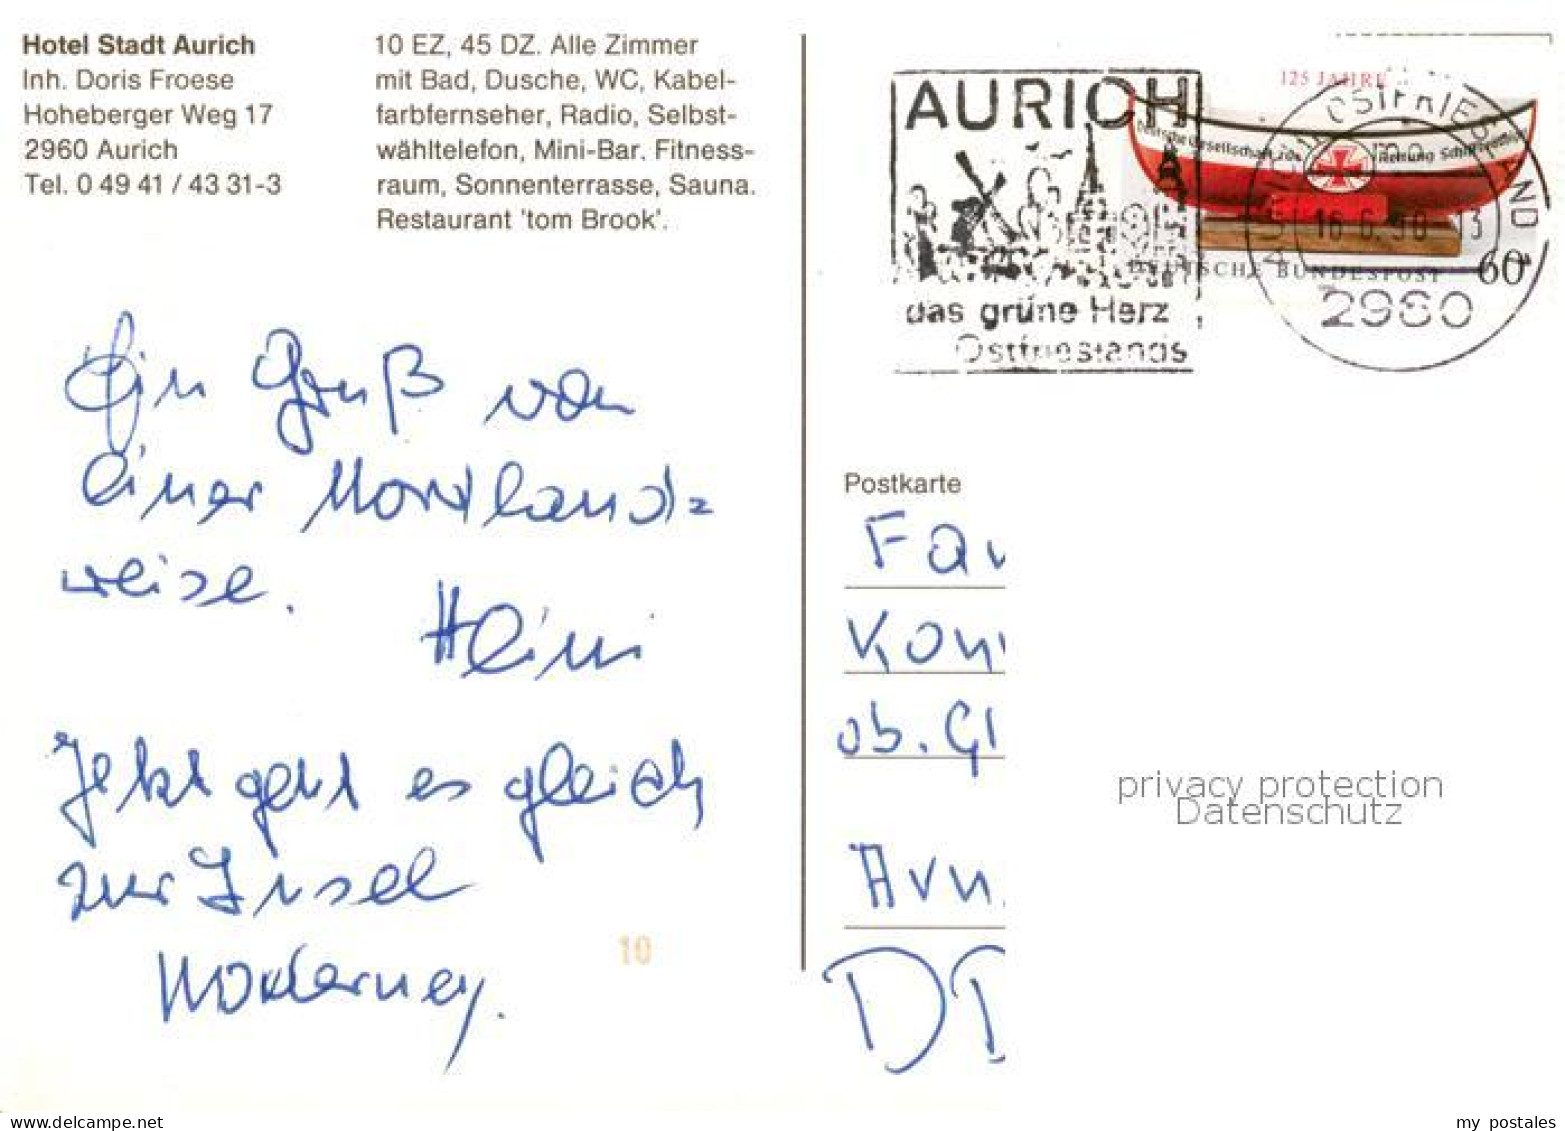 Hotel Stadt Aurich
Inh. Doris Froese
Hoheberger Weg 17
2960 Aurich
Tel. 0 49 41 / 43 31-3
10 EZ, 45 DZ. Alle Zimmer
mit Bad, Dusche, WC, Kabel-
farbfernseher, Radio, Selbst-
wähltelefon, Mini-Bar. Fitness-
raum, Sonnenterrasse, Sauna.
Restaurant 'tom Brook'.
AURICH
das grüne Herz
Ostfrieslands
125 JAHRE
Deutsche Gesellschaft zur Rettung Schiffbrüchiger
DEUTSCHE BUNDESPOST 60
AURICH, OSTFRIESLAND
16.6.90-13
2960
Ein Gruß von
einer Nordland=
reise.
Heini
Jetzt geht es gleich
zur Insel
Norderney.
10
Postkarte
Fa
Kon
ob. Gl
Arn
D
privacy protection
Datenschutz
www.delcampe.net
my_postales